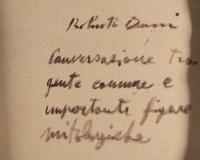 Roberto Dami
Conversazione tra
gente comune e
importante figure
mitologiche